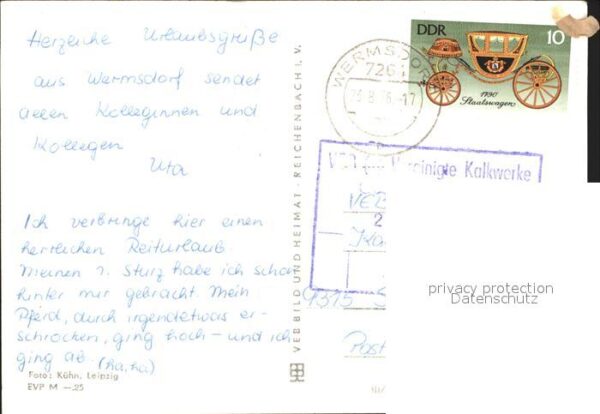 Herzliche Urlaubsgrüße
aus Wermsdorf sendet
allen Kolleginnen und
Kollegen
Uta
Ich verbringe hier einen
herrlichen Reiturlaub
Meinen 1. Sturz habe ich schon
hinter mir gebracht. Mein
Pferd, durch irgendetwas er-
schrocken, ging hoch – und ich
ging ab. (ha, ha)
Foto: Kühn, Leipzig
EVP M –.25
VEB BILD UND HEIMAT · REICHENBACH I. V.
DDR 10
1790
Staatswagen
WERMSDORF
7261
Vereinigte Kalkwerke
VEB
9375
Post
privacy protection
Datenschutz